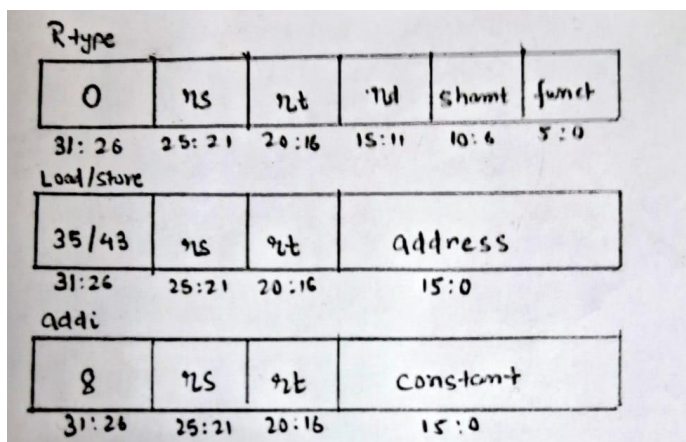 R-type
0 rs rt rd shamt funct
31:26 25:21 20:16 15:11 10:6 5:0
Load/Store
35/43 rs rt address
31:26 25:21 20:16 15:0
addi
8 rs rt constant
31:26 25:21 20:16 15:0